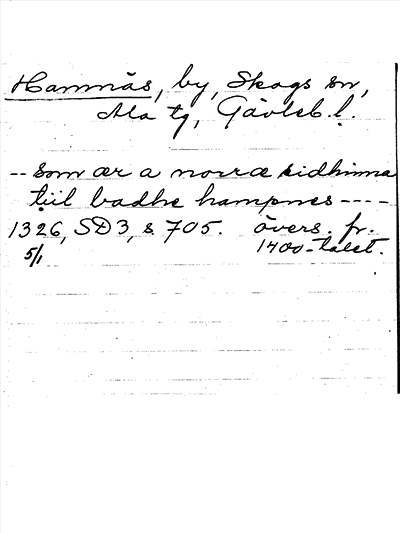 Hamnäs, by, Skogs sn,
Ala tg, Gävleb. l.
-- som ær a norræ sidhinna
tiil badhe hampnes ----
1326, SD3, s 705. övers. fr.
5/1 1400-talet.